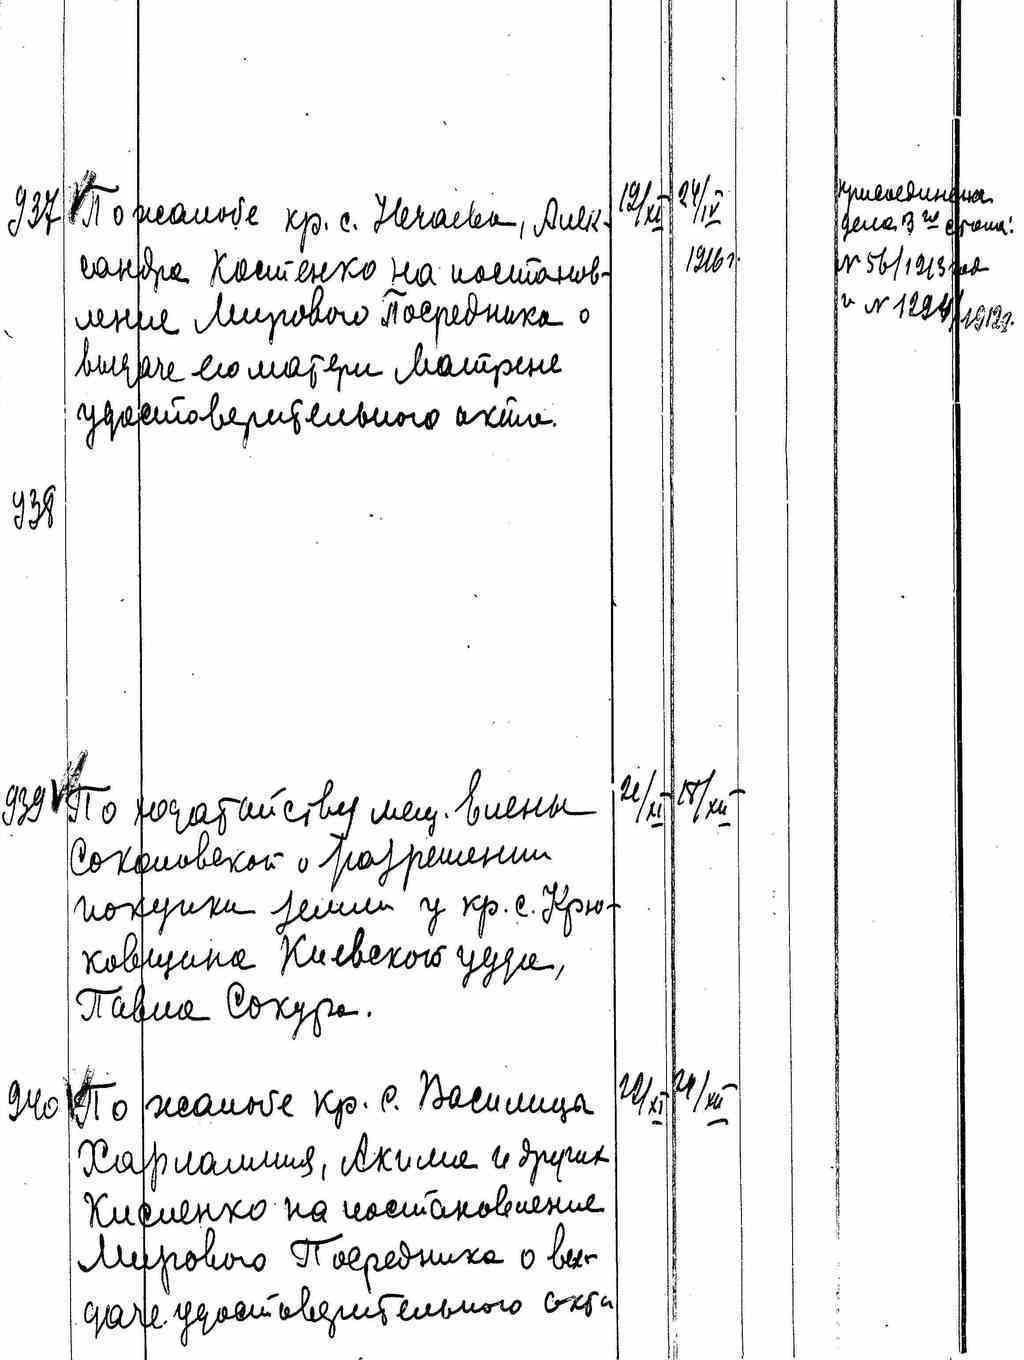 937 По жалобе кр. с. Нечаева, Алек- 19/XI 24/IV 1916 г. присоединена
сандра Костенко на постанов- дела 3го стола:
ление Мирового Посредника о N 56/1913 год
выдаче его матери Матрене и N 1294/1912 г.
удостоверительного акта.
938
939 По ходатайству мещ. Елены 21/XI 18/XII
Соколовской о разрешении
покупки земли у кр. с. Крю-
ковщина Киевского уезда,
Павла Сокура.
940 По жалобе кр. с. Василица 22/XI 24/XII
Харлампия, Акима и других
Кисленко на постановление
Мирового Посредника о вы-
даче удостоверительного акта